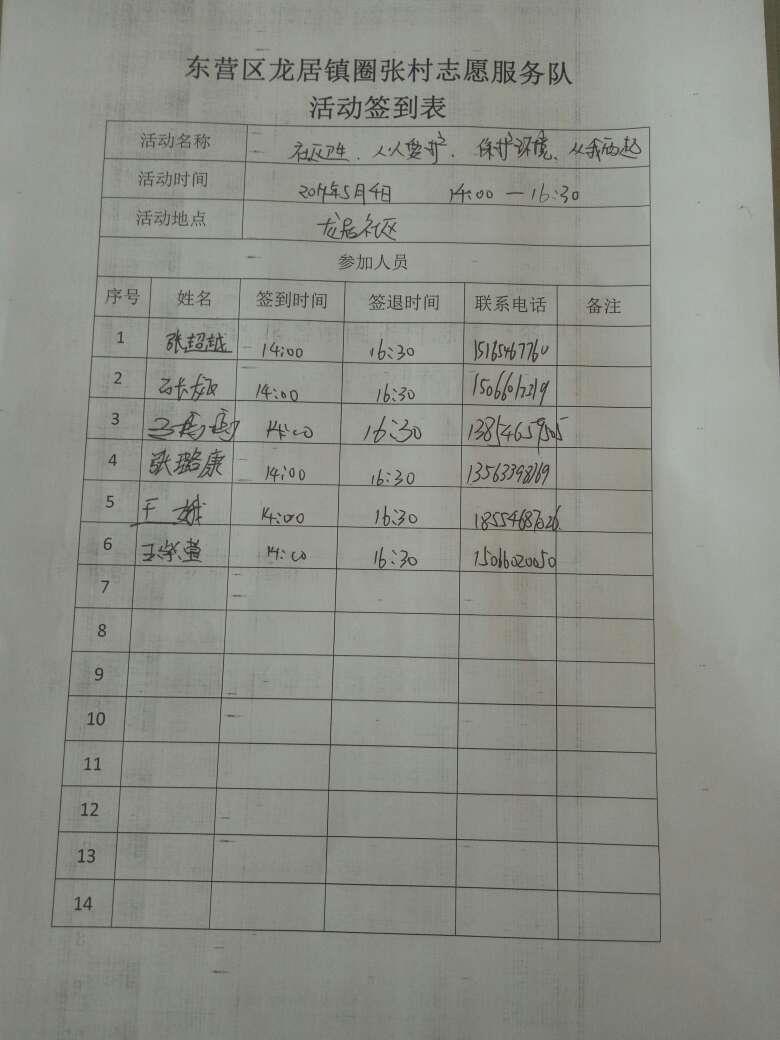 东营区龙居镇圈张村志愿服务队
活动签到表
活动名称 社区卫生、人人爱护、保护环境、从我而起
活动时间 2017年5月4日 14:00 — 16:30
活动地点 龙居社区
参加人员
序号 姓名 签到时间 签退时间 联系电话 备注
1 张超越 14:00 16:30 15165467760
2 14:00 16:30
3 14:00 16:30 13854659505
4 张璐康 14:00 16:30
5 14:00 16:30
6 14:00 16:30 15066020050
7
8
9
10
11
12
13
14